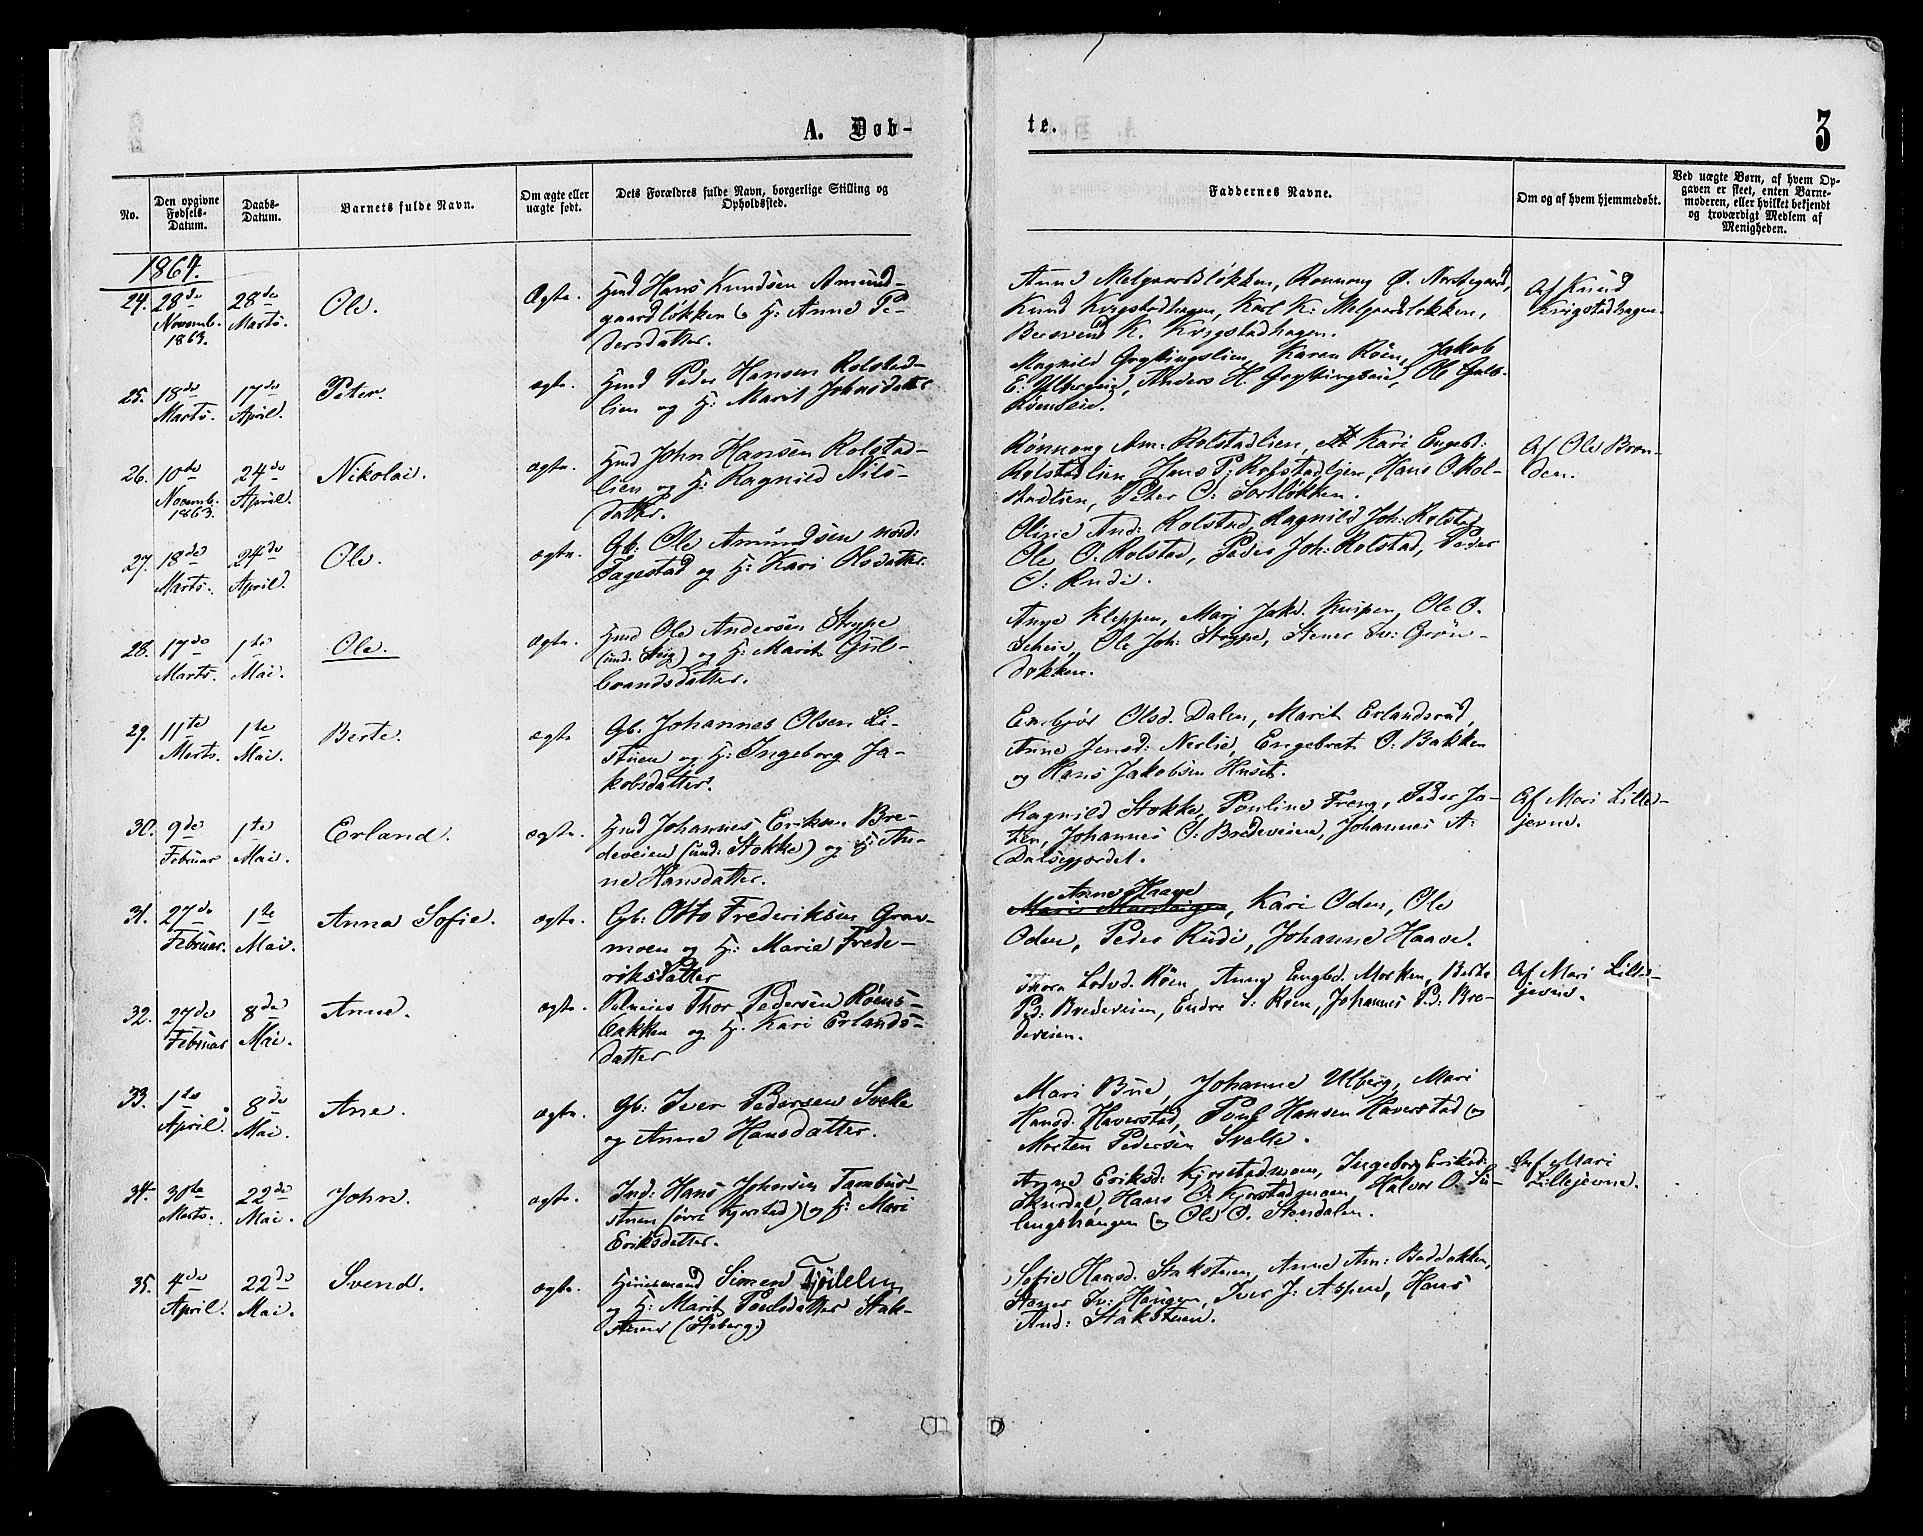 A. Døb-
te.
3
No.
Den opgivne Fødsels-Datum.
Daabs-Datum.
Barnets fulde Navn.
Om ægte eller uægte født.
Dets Forældres fulde Navn, borgerlige Stilling og Opholdssted.
Faddernes Navne.
Om og af hvem hjemmedøbt.
Ved uægte Børn, af hvem Opgaven er skeet, enten Barnemoderen, eller hvilket bekjendt og troværdigt Medlem af Menigheden.
1864.
24. 28de Novemb. 1863. 28de Marts. Ole. Ægte.
Hans Knudsen Amund-
gaardløkken og H: Anne Pe-
dersdatter.
Knud Kvigstadhagen, Karl K: Melgaardsløkken,
K. Kvigstadhagen.
Af Knud
Kvigstadhagen.
25. 18de Marts. 17de April. Peter. ægte.
Peder Hansen Rolstad-
lien og H: Marit Johnsdatter
Magnild Karen Røen, Jakob
Anders H.
26. 10de Novemb. 1863. 24de April. Nikolai. ægte.
John Hansen Rolstad-
lien og H: Ragnild Nils-
datter.
Rønnaug Am: Rolstadlien, Kari
Rolstadlien, Hans P: Rolstadlien, Hans O. Rol-
stadlien, Peter O:
Af Ole Bræn-
den.
27. 18de Marts. 24de April. Ole. ægte.
Gb: Ole Amundsen nord:
Fagestad og H: Kari Olsdatter.
And: Rolstad, Ragnild Joh: Rolstad
Ole O: Rolstad, Peder Joh: Rolstad, Peder
O: Rudi.
28. 17de Marts. 1te Mai. Ole. ægte.
Ole Andersen Strype
(und. Steig) og H: Marit Gul-
brandsdatter.
Kleppen, Mari Jakd. Ole O.
Ole Joh: Strype, Stener Sv: Grøn-
dokken.
29. 11te Marts. 1te Mai. Berte. ægte
Gb. Johannes Olsen Li-
stuen og H: Ingeborg Ja-
kobsdatter.
Embjør Olsd. Dalen, Marit Erlandsrud,
Anne Jensd: Nerlie, Engebret O: Bakken
og Hans Jakobsen Huset.
30. 9de Februar 1te Mai. Erland. ægte.
Johannes Eriksen Bre-
deveien (und: Stokke) og H: An-
ne Hansdatter.
Ragnild Stokke, Pouline Freng, Peder Ja-
Johannes O: Bredeveien, Johannes A:
Dalsegjerdet.
Af Mari Lille-
jevne.
31. 27de Februar. 1te Mai. Anna Sofie. ægte.
Gb: Otto Frederiksen Grav-
moen og H: Marie Frede-
riksdatter
Anne Haave
Kari Oden, Ole
Oden, Peder Rudi, Johanne Haave.
32. 27de Februar 8de Mai. Anne. ægte.
Thor Pedersen Røens-
bakken og H: Kari Erlands-
datter
Thora Røen, Anne Engbd. Morken, Berte
Pd: Bredeveien, Endre S: Røen, Johannes Pd: Bre-
deveien.
Af Mari Lille-
jevne.
33. 1te April. 8de Mai. Ane. ægte.
Gb: Iver Pedersen Svelle
og Anne Hansdatter.
Mari Bue, Johanne Ulberg, Mari
Hansd. Haverstad, Poul Hansen Haverstad og
Morten Pedersen Svelle.
34. 30te Marts. 22de Mai. John. ægte.
Ind: Hans Johnsen Tambur-
stuen (øvre Kjorstad) og H: Mari
Eriksdatter.
Anne Eriksd: Kjorstadmoen, Ingeborg Eriksd:
Skurdal, Hans O: Kjorstadmoen, Halvor O.
og Ole O. Stendalen.
Af Mari
Lillejevne.
35. 4de April. 22de Mai. Svend. ægte.
Huusmand Simen
og H: Marit Poulsdatter Stak-
stuen
Sofie Hansd. Stakstuen, Anne Am:
Stener Sv: Haugen, Iver J: Aspen, Hans
And: Stakstuen.